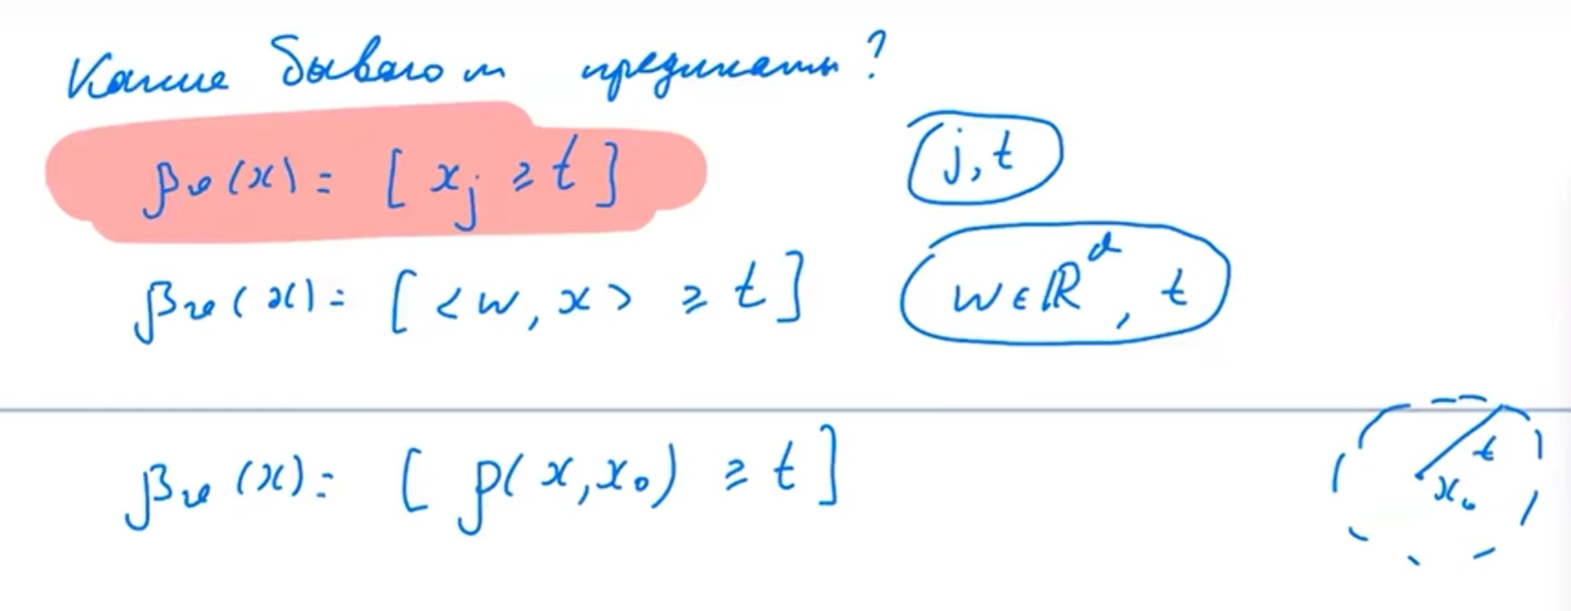 Какие бывают предикаты?
βᵥ(x) = [ xⱼ ≥ t ] j, t
βᵥ(x) = [ <w, x> ≥ t ] w ∈ ℝᵈ, t
βᵥ(x) = [ ρ(x, x₀) ≥ t ] t
x₀